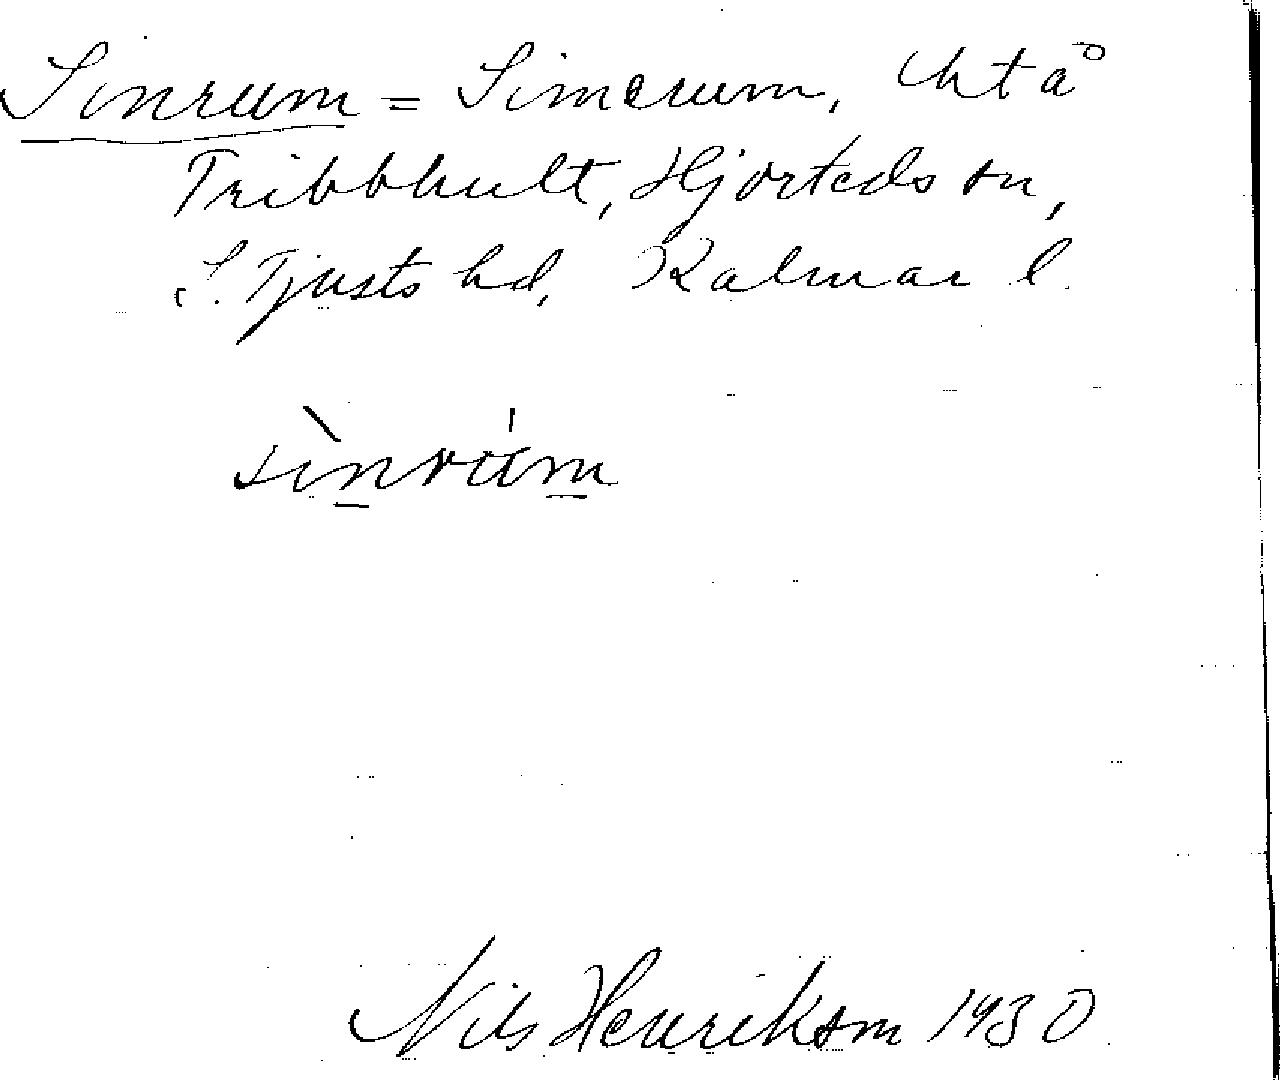 Sinrum = Simerum, Cht å
Tribbhult, Hjorteds sn,
S. Tjusts hd, Kalmar l.
sìnrúm
Nils Henrikson 1930